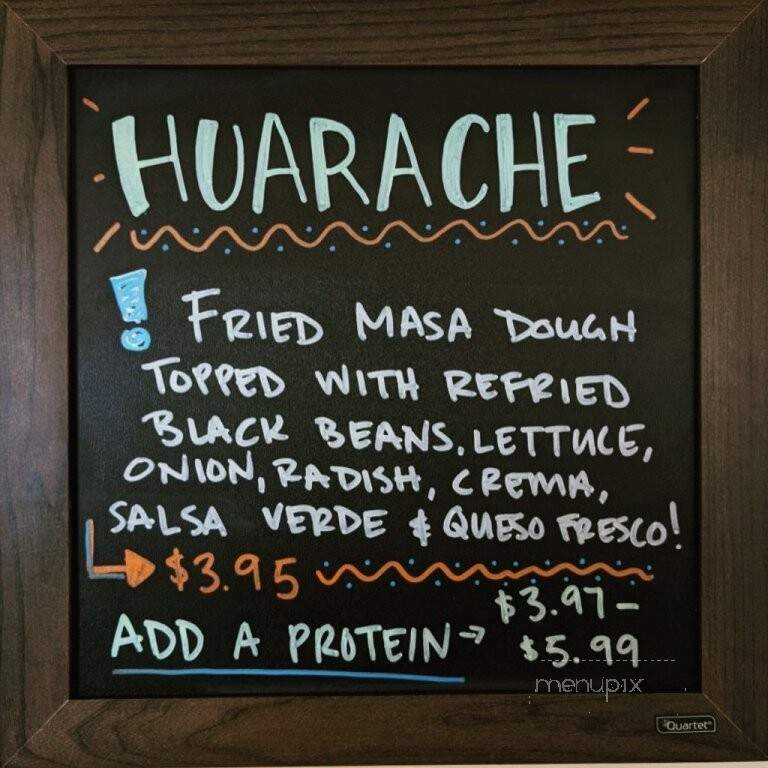 HUARACHE
! FRIED MASA DOUGH
TOPPED WITH REFRIED
BLACK BEANS, LETTUCE,
ONION, RADISH, CREMA,
SALSA VERDE & QUESO FRESCO!
→ $3.95
ADD A PROTEIN → $3.97-
$5.99
menupix
Quartet®